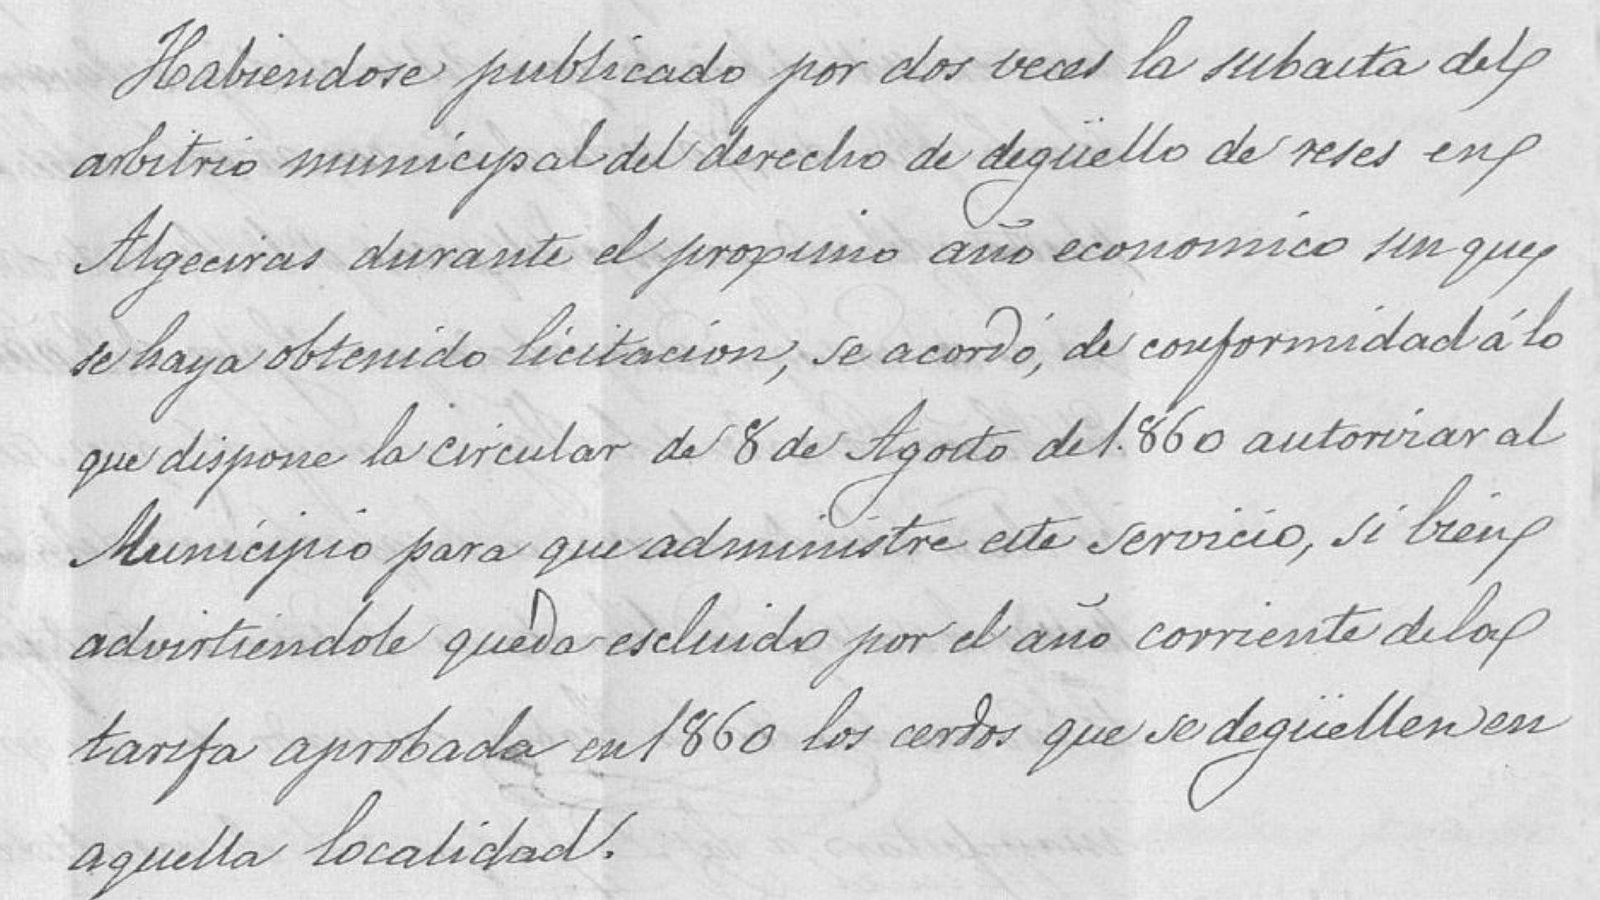 Habiendose publicado por dos veces la subasta del
arbitrio municipal del derecho de degüello de reses en
Algeciras durante el propsimo año economico sin que
se haya obtenido licitacion, se acordó, de conformidad á lo
que dispone la circular de 8 de Agosto de 1.860 autorizar al
Municipio para que administre este servicio, si bien
advirtiendole queda escluido por el año corriente de la
tarifa aprobada en 1860 los cerdos que se degüellen en
aquella localidad.